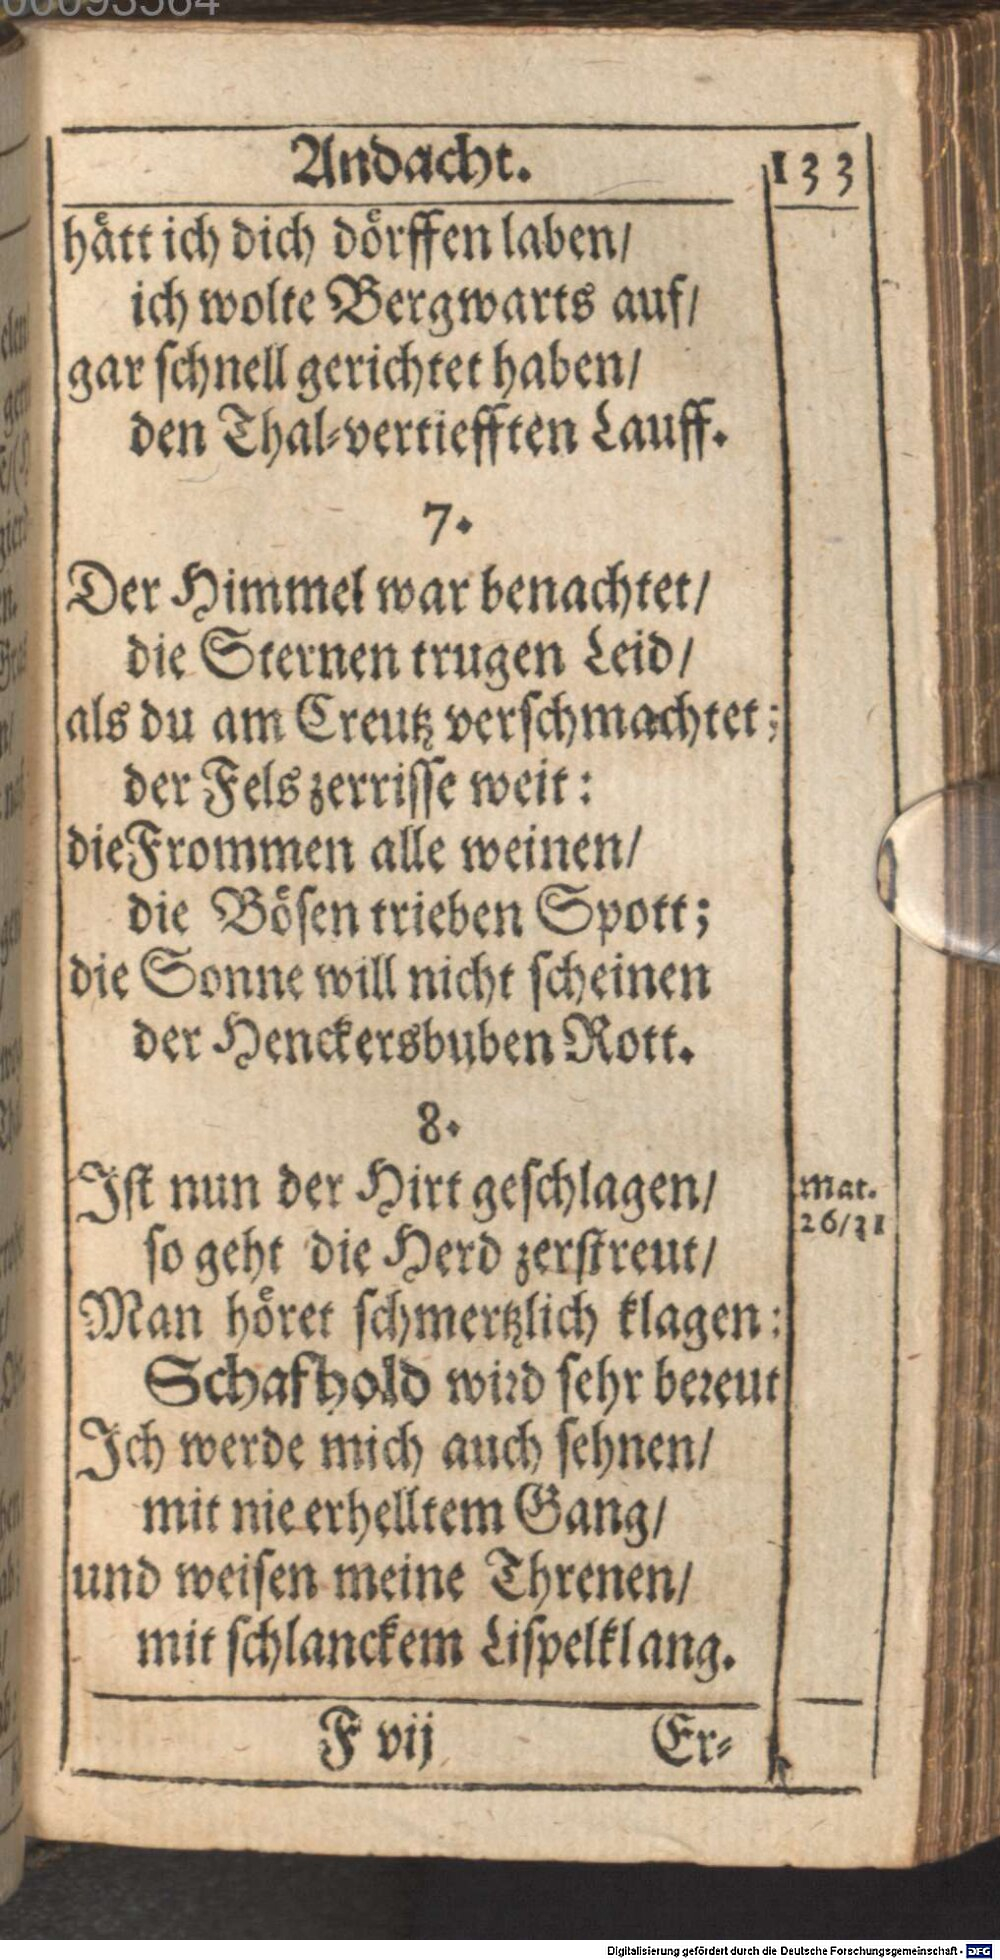 Andacht. 133
hått ich dich dörffen laben/
ich wolte Bergwarts auf/
gar schnell gerichtet haben/
den Thal-vertiefften Lauff.
7.
Der Himmel war benachtet/
die Sternen trugen Leid/
als du am Creutz verschmachtet;
der Fels zerrisse weit:
die Frommen alle weinen/
die Bösen trieben Spott;
die Sonne will nicht scheinen
der Henckersbuben Rott.
8.
Ist nun der Hirt geschlagen/
Mat.
26/31
so geht die Herd zerstreut/
Man höret schmertzlich klagen:
Schafhold wird sehr bereut
Ich werde mich auch sehnen/
mit nie erhelltem Gang/
und weisen meine Threnen/
mit schlanckem Lispelklang.
F vij Er-
Digitalisierung gefördert durch die Deutsche Forschungsgemeinschaft - DFG